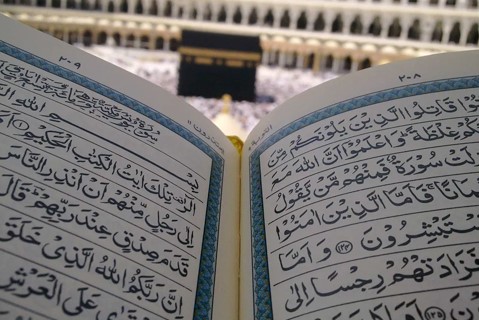 ٢٠٨
قَاتِلُوا۟ ٱلَّذِينَ يَلُونَكُم مِّنَ
غِلْظَةً وَٱعْلَمُوٓا۟ أَنَّ ٱللَّهَ مَعَ
سُورَةٌ فَمِنْهُم مَّن يَقُولُ
فَأَمَّا ٱلَّذِينَ ءَامَنُوا۟
يَسْتَبْشِرُونَ ١٢٤ وَأَمَّا
فَزَادَتْهُمْ رِجْسًا إِلَىٰ
١٢٥
٢٠٩
بِسْمِ ٱللَّهِ
الٓر تِلْكَ ءَايَٰتُ ٱلْكِتَٰبِ ٱلْحَكِيمِ ١
إِلَىٰ رَجُلٍ مِّنْهُمْ أَنْ أَنذِرِ ٱلنَّاسَ
قَدَمَ صِدْقٍ عِندَ رَبِّهِمْ قَالَ
إِنَّ رَبَّكُمُ ٱللَّهُ ٱلَّذِى خَلَقَ
عَلَى ٱلْعَرْشِ